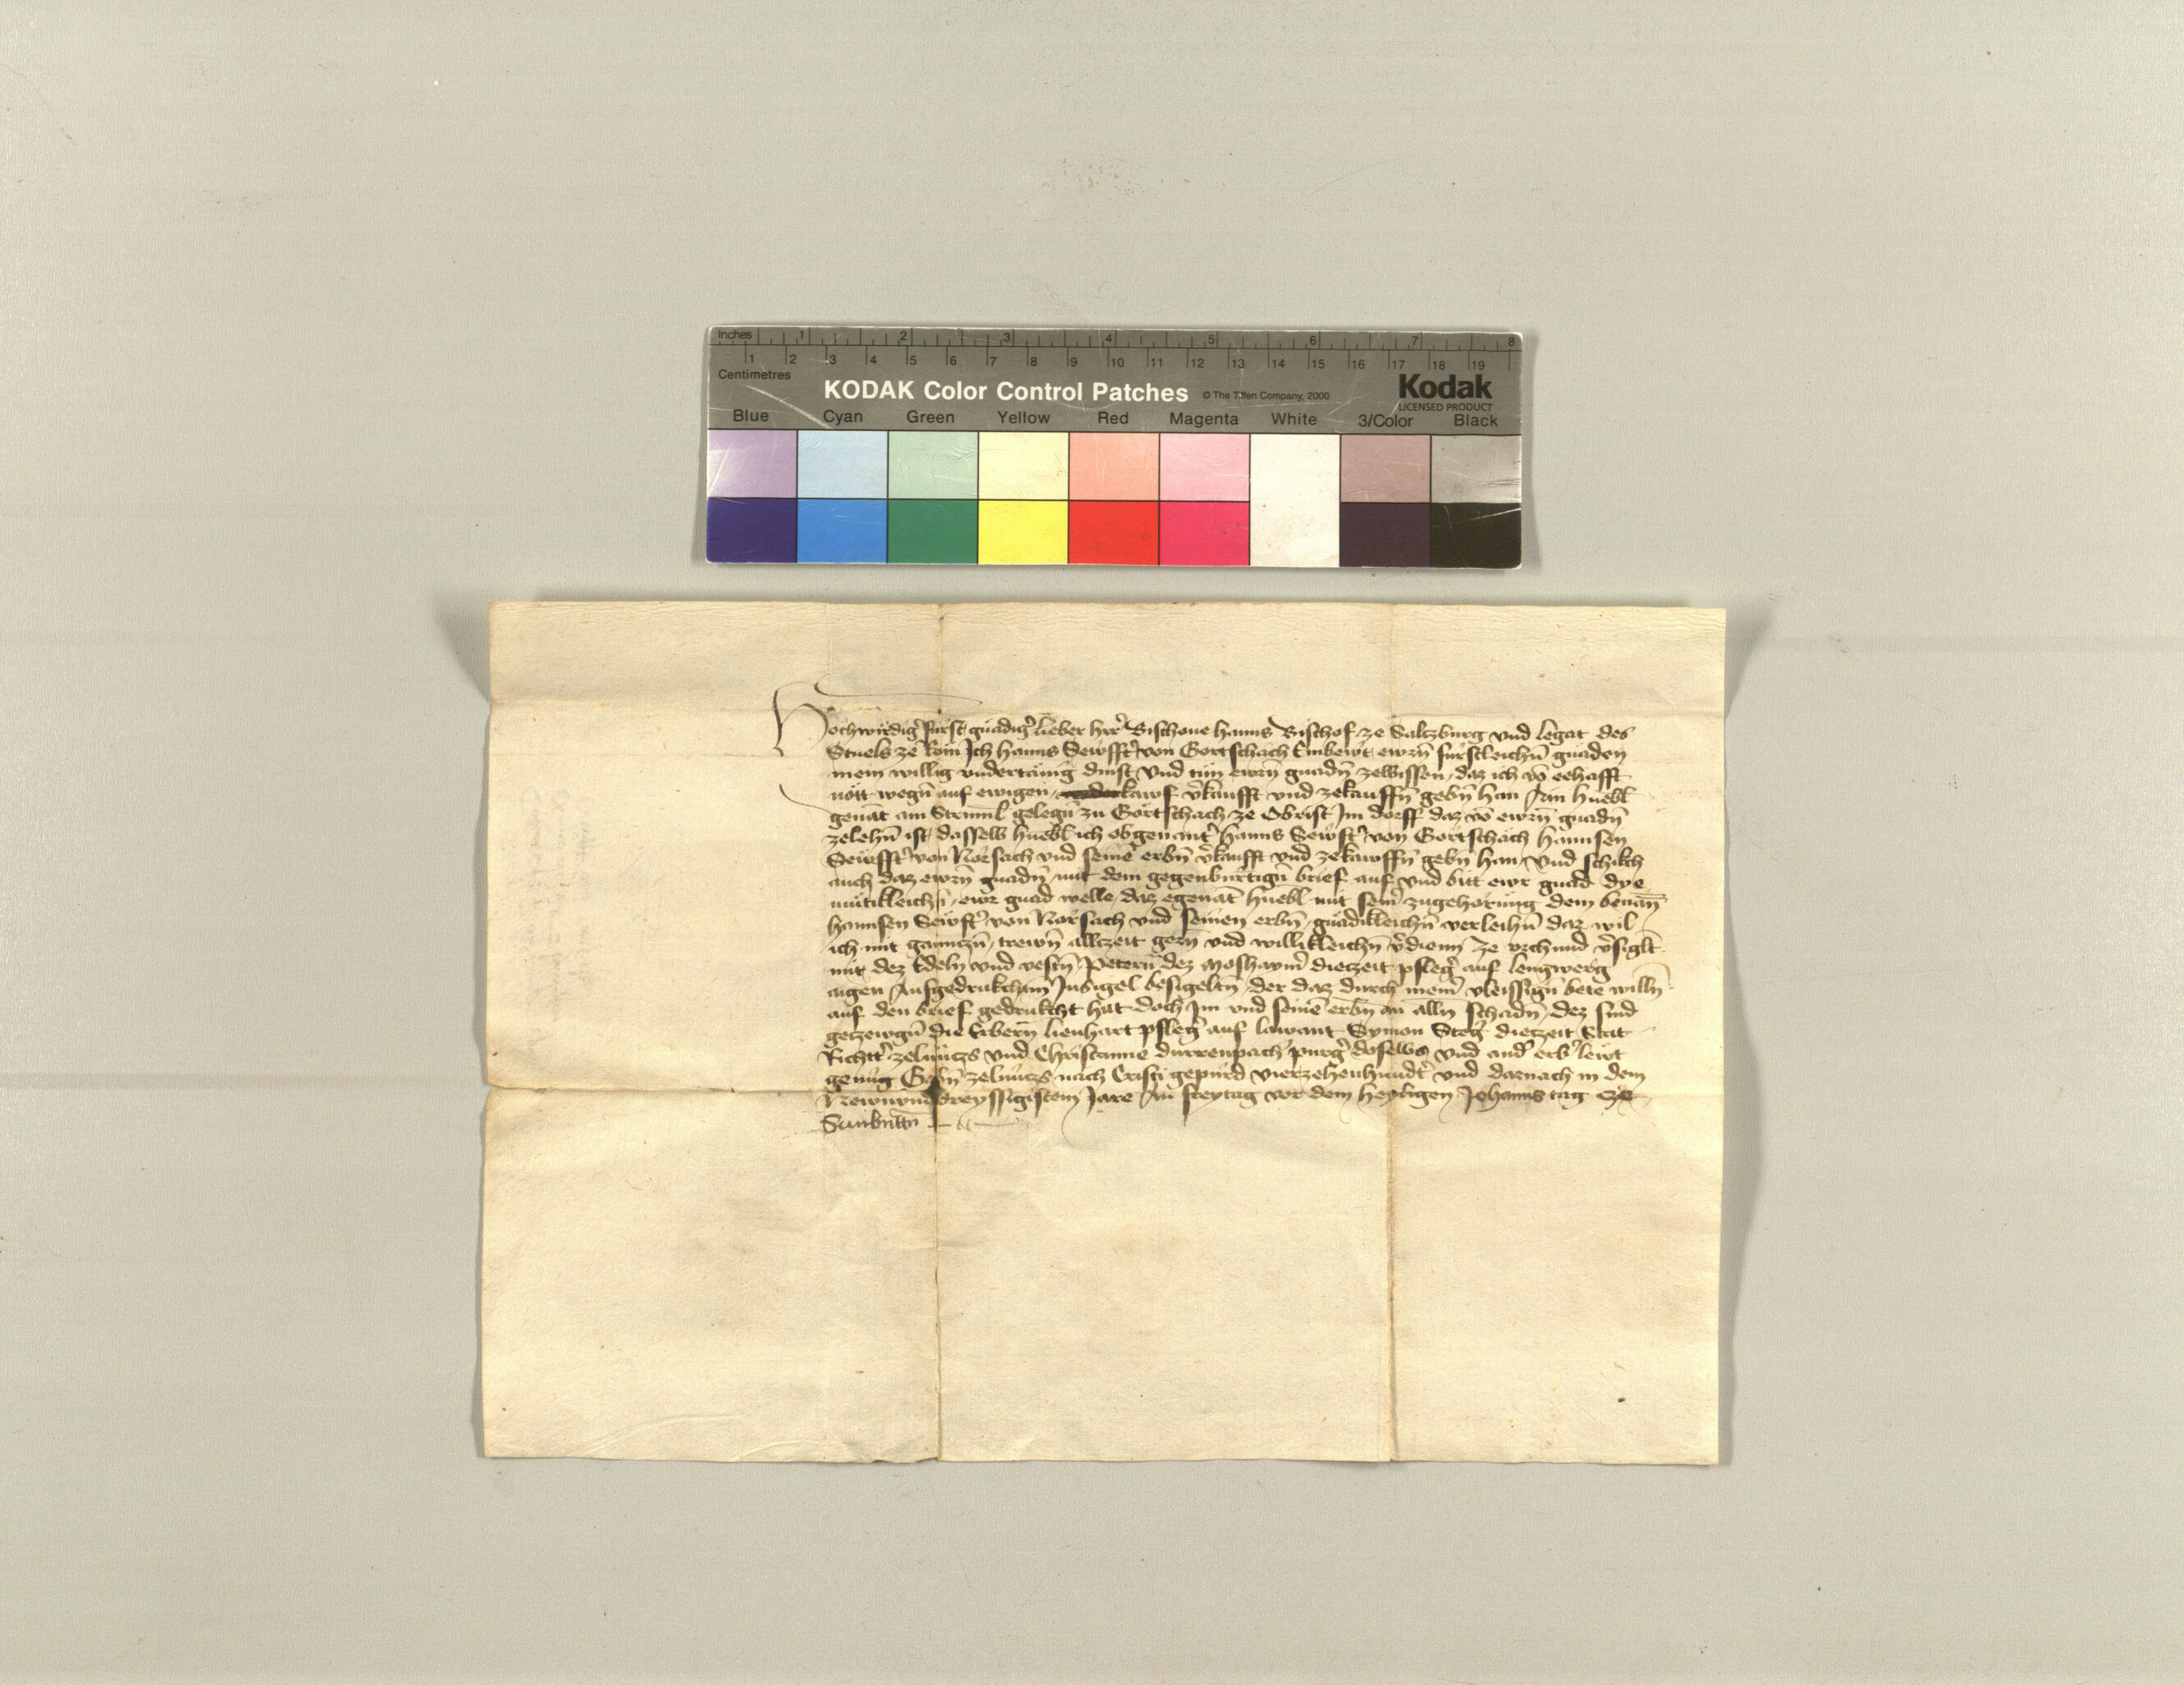 Inches 1 2 3 4 5 6 7 8
1 2 3 4 5 6 7 8 9 10 11 12 13 14 15 16 17 18 19
Centimetres
KODAK Color Control Patches © The Tiffen Company, 2000 Kodak
LICENSED PRODUCT
Blue Cyan Green Yellow Red Magenta White 3/Color Black
Hochwirdigˀ fürst gnädigˀ lieber herˀ Bischoue hanns Bischof ze Saltzburg vnd legat des
Stuels ze Rom Ich hanns Sewfftˀ von Gortschach Embewt ewrn̄ fürstleichn̄ gnaden
mein willig vndertänig dinst Vnd tün ewrn̄ gnadn̄ zewissen, daz ich vō eehafft
nött wegn̄ auf ewigen kawf v̉kaufft vnd zekauffn̄ gebn̄ han Ain huebl
genāt am gelegn̄ zu Görtschach ze Obrist Im dorff daz vō ewrn̄ gnadn̄
zelehn̄ ist, dasselb huebl ich obgenantˀ hanns Sewftˀ von Görtschach hannsen
Sewfftˀ von Nörsach vnd seinē erbn̄ v̉kaufft vnd zekawffn̄ gebn̄ han, Vnd schikch
auch daz ewrn̄ gnadn̄ mit dem gegenbürtign̄ brief auf vnd bitt ewr gnad dye
mütikleichn̄, ewr gnad welle, daz egenāt huebl mit seinˀ zugehörüng dem benān̄
hannsen Sewftˀ von Nörsach vnd seinen erbn̄ gnädikleichn̄ verleihn̄ daz wil
ich mit ganntzn̄, trewn̄ alltzeit gern̄ vnd willikleichn̄ v̉dienn̄ Ze vrchund v̉siglt
mit dez Edeln vnd vestn̄ Petern̄ dez Moshaymˀ dietzeit pflegˀ auf lengwerg
aigen Aufgedrukchtem Insigel besigeltn̄ der daz durch meinˀ vleissign̄ bete willn̄
auf den brief gedrukcht hat doch Im vnd seinē erbn̄ an alln̄ schadn̄, dez sind
getzewgn̄ die Erbern̄ lienhart pflegˀ auf lawant Symon Stegˀ dietzeit Stat
Richttˀ zelüntzs vnd Christanne dürrenpachˀ purgˀ doselbs vnd andˀ erbˀ lewt
genüg Gebn̄ zelüntzs nach Cristi gepürd vierzehenhundtˀ vnd darnach in dem
Newnvnddreyssigistem Jare An freytag vor dem heyligen Johanns tag ze
Sunbnttn̄